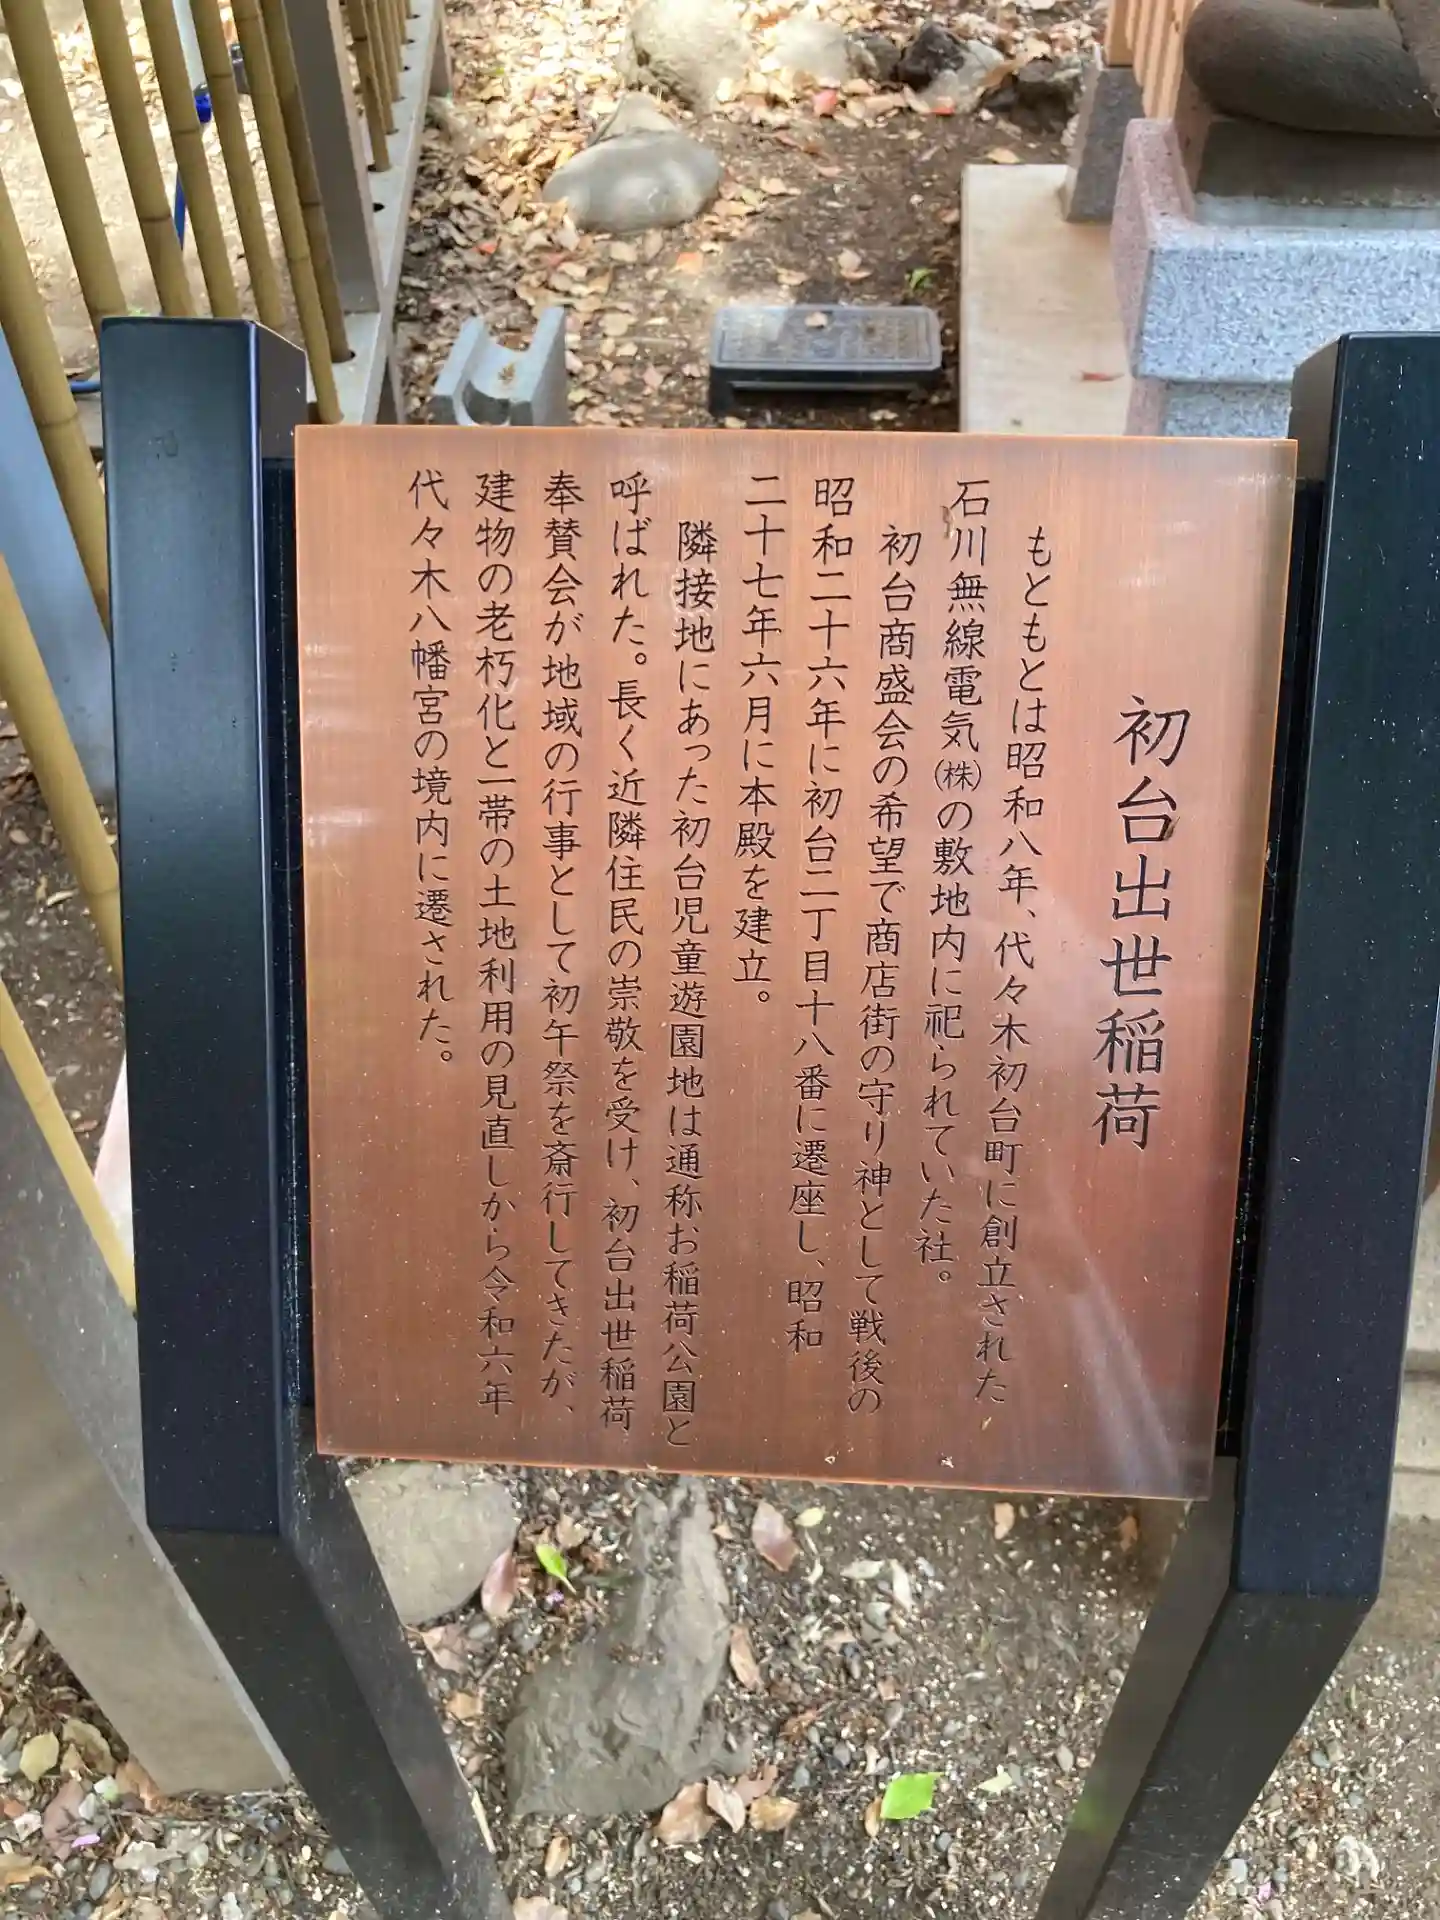 初台出世稲荷
もともとは昭和八年、代々木初台町に創立された
石川無線電気㈱の敷地内に祀られていた社。
初台商盛会の希望で商店街の守り神として戦後の
昭和二十六年に初台二丁目十八番に遷座し、昭和
二十七年六月に本殿を建立。
隣接地にあった初台児童遊園地は通称お稲荷公園と
呼ばれた。長く近隣住民の崇敬を受け、初台出世稲荷
奉賛会が地域の行事として初午祭を斎行してきたが、
建物の老朽化と一帯の土地利用の見直しから令和六年
代々木八幡宮の境内に遷された。